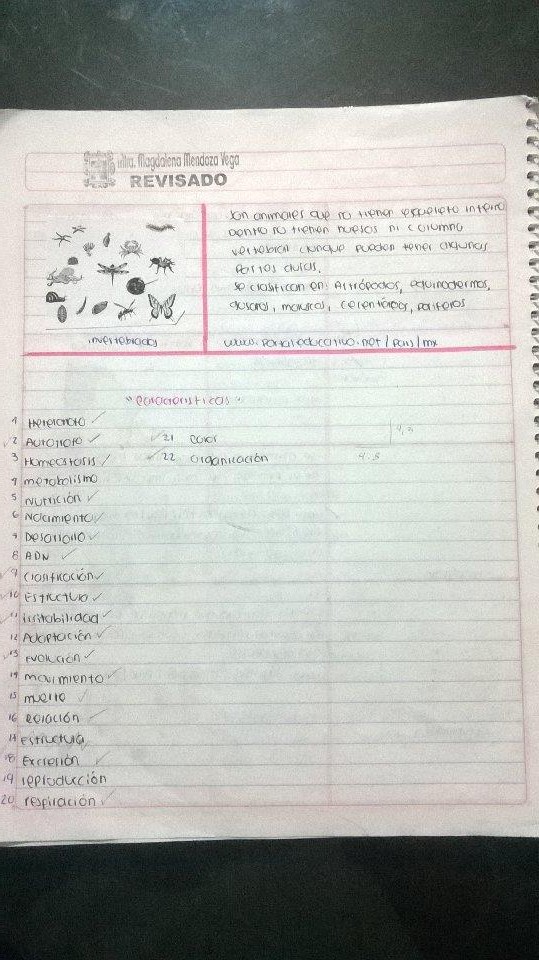 Mtra. Magdalena Mendoza Vega
REVISADO
Son animales que no tienen esqueleto interno
Dentro no tienen huesos ni columna
vertebral aunque pueden tener algunas
partes duras.
Se clasifican en: Artrópodos, equinodermos,
gusanos, moluscos, celentéreos, poríferos
invertebrados
www.portaleducativo.net/pais/mx
"Características"
1 Heterótrofo
2 Autotrofo
21 color
3 Homeostasis
22 organización
4 metabolismo
5 Nutrición
6 Nacimiento
7 Desarrollo
8 ADN
9 Clasificación
10 Estructura
11 irritabilidad
12 Adaptación
13 evolución
14 movimiento
15 muerte
16 relación
17 estructura
18 Excresión
19 reproducción
20 respiración